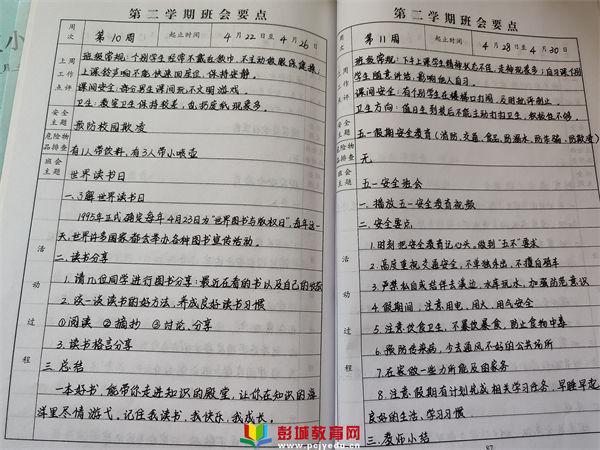 第二学期班会要点
周次
第10周
起止时间
4月22日至4月26日
上周工作点评
班级常规:个别学生经常不戴红领巾,不主动做眼保健操,
上课铃声响不能快速回座位,保持安静。
课间安全:部分男生课间玩不文明游戏。
卫生:教室卫生保持较差,乱扔废纸现象多。
安全主题
预防校园欺凌
危险物品排查
有1人带饮料,有3人带小喷壶
班会主题
世界读书日
活动过程
一、了解世界读书日
1995年正式确定每年4月23日为"世界图书与版权日",每年这一
天,世界许多国家都会举办各种图书宣传活动。
二、读书分享
1. 请几位同学进行图书分享:最近在看的书以及自己的收获
2. 谈一谈读书的好方法,养成良好读书习惯
①阅读 ②摘抄 ③讨论、分享
3. 读书格言分享
三、总结
一本好书,能带你走进知识的殿堂,让你在知识的海
洋里尽情游弋。记住我读书,我快乐,我成长。
第二学期班会要点
周次
第11周
起止时间
4月28日至4月30日
上周工作点评
班级常规:下午上课学生精神状态不佳,走神现象多;自习课个别
学生随意讲话,影响他人自习。
课间安全:有个别学生在楼梯口打闹,及时批评制止。
卫生方面:值日生到校后不能主动打扫卫生,积极性不够。
安全主题
五一假期安全教育(消防、交通、食品、防溺水、防诈骗、防欺凌)
危险物品排查
无。
班会主题
五一安全班会
活动过程
一、播放五一安全教育视频
二、安全要点
1. 时刻把安全教育记心头,做到"五不"要求
2. 高度重视交通安全,不单独外出,不擅自骑车
3. 严禁私自或结伴去溪边、水库玩水,加强防范意识
4. 假期间,注意用电、用火、用气安全
5. 注意饮食卫生,不暴饮暴食,防止食物中毒
6. 预防传染病,少去通风不好的公共场所
7. 在家做一些力所能及的家务
8. 注意假期有计划完成相关学习任务,早睡早起
良好的生活、学习习惯
三、教师小结
87
彭城教育网
www.pcjyedu.cn